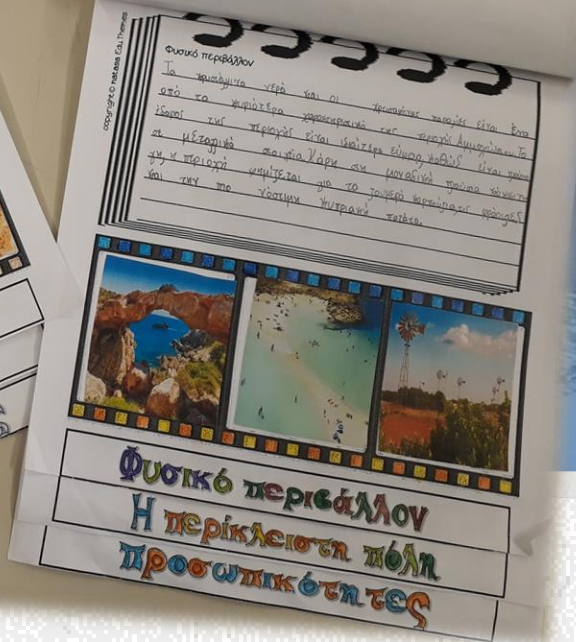 copyright© natasa Edu Themes
Φυσικό περιβάλλον
Τα κρυστάλλινα νερά και οι χρυσαφένιες παραλίες είναι ένα
από τα κυριότερα χαρακτηριστικά της περιοχής Αμμοχώστου. Το
έδαφος της περιοχής είναι ιδιαίτερα εύφορο καθώς είναι
σε μεταλλικά στοιχεία. Χάρη στη μοναδική
γη, η περιοχή φημίζεται για τα
και την πιο νόστιμη κυπριακή πατάτα.
Φυσικό περιβάλλον
Η περίκλειστη πόλη
Προσωπικότητες